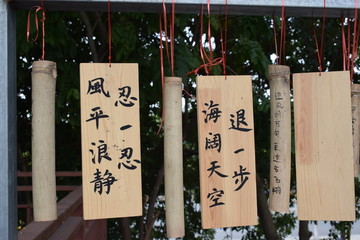 忍一忍
风平浪静
退一步
海阔天空